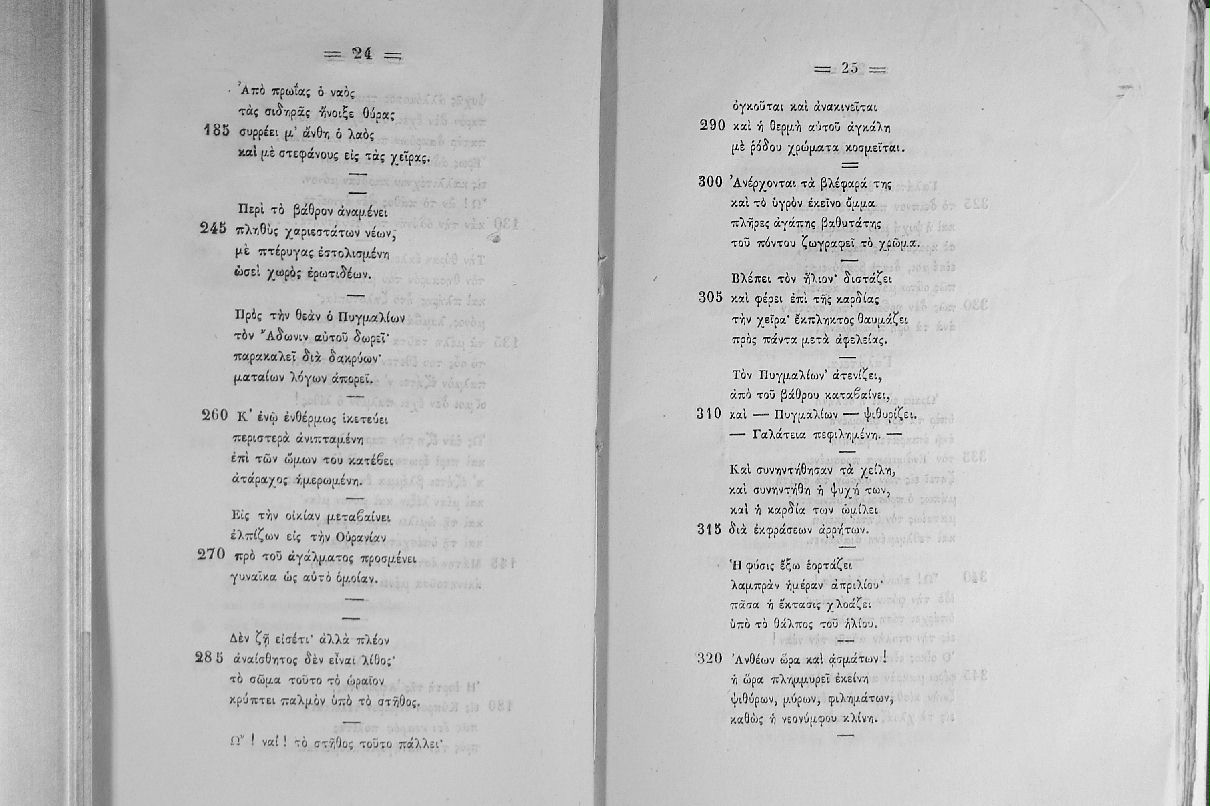 = 24 =
Ἀπὸ πρωΐας ὁ ναὸς
τὰς σιδηρᾶς ἤνοιξε θύρας
185 συρρέει μ' ἄνθη ὁ λαὸς
καὶ μὲ στεφάνους εἰς τὰς χεῖρας.
Περὶ τὸ βάθρον ἀναμένει
245 πληθὺς χαριεστάτων νέων,
μὲ πτέρυγας ἐστολισμένη
ὡσεὶ χωρὸς ἐρωτιδέων.
Πρὸς τὴν θεὰν ὁ Πυγμαλίων
τὸν Ἄδωνιν αὐτοῦ δωρεῖ·
παρακαλεῖ διὰ δακρύων·
ματαίων λόγων ἀπορεῖ.
260 Κ' ἐνῷ ἐνθέρμως ἱκετεύει
περιστερὰ ἀνιπταμένη
ἐπὶ τῶν ὤμων του κατέβει
ἀτάραχος ἡμερωμένη.
Εἰς τὴν οἰκίαν μεταβαίνει
ἐλπίζων εἰς τὴν Οὐρανίαν
270 πρὸ τοῦ ἀγάλματος προσμένει
γυναῖκα ὡς αὐτὸ ὁμοίαν.
Δὲν ζῇ εἰσέτι· ἀλλὰ πλέον
285 ἀναίσθητος δὲν εἶναι λίθος·
τὸ σῶμα τοῦτο τὸ ὡραῖον
κρύπτει παλμὸν ὑπὸ τὸ στῆθος.
Ὢ ! ναί ! τὸ στῆθος τοῦτο πάλλει·
= 25 =
ὀγκοῦται καὶ ἀνακινεῖται
290 καὶ ἡ θερμὴ αὐτοῦ ἀγκάλη
μὲ ῥόδου χρώματα κοσμεῖται.
300 Ἀνέρχονται τὰ βλέφαρά της
καὶ τὸ ὑγρὸν ἐκεῖνο ὄμμα
πλῆρες ἀγάπης βαθυτάτης
τοῦ πόντου ζωγραφεῖ τὸ χρῶμα.
Βλέπει τὸν ἥλιον· διστάζει
305 καὶ φέρει ἐπὶ τῆς καρδίας
τὴν χεῖρα· ἔκπληκτος θαυμάζει
πρὸς πάντα μετὰ ἀφελείας.
Τὸν Πυγμαλίων' ἀτενίζει,
ἀπὸ τοῦ βάθρου καταβαίνει,
310 καὶ — Πυγμαλίων — ψιθυρίζει.
— Γαλάτεια πεφιλημένη. —
Καὶ συνηντήθησαν τὰ χείλη,
καὶ συνηντήθη ἡ ψυχή των,
καὶ ἡ καρδία των ὡμίλει
315 διὰ ἐκφράσεων ἀρρήτων.
Ἡ φύσις ἔξω ἑορτάζει
λαμπρὰν ἡμέραν ἀπριλίου·
πᾶσα ἡ ἔκτασις χλοάζει
ὑπὸ τὸ θάλπος τοῦ ἡλίου.
320 Ἀνθέων ὥρα καὶ ᾀσμάτων !
ἡ ὥρα πλημμυρεῖ ἐκείνη
ψιθύρων, μύρων, φιλημάτων,
καθὼς ἡ νεονύμφου κλίνη.